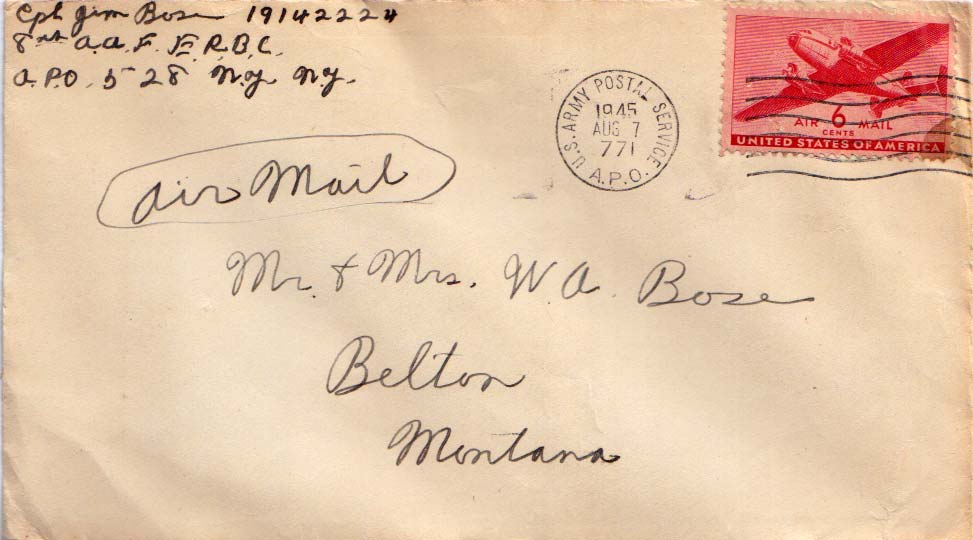 Cpl Jim Bose 19142224
8th A.A.F. F.R.B.C.
A.P.O. 528 N.Y. N.Y.
U.S. ARMY POSTAL SERVICE
1945
AUG 7
771
A.P.O.
AIR 6 MAIL
CENTS
UNITED STATES OF AMERICA
Air Mail
Mr. & Mrs. W.A. Bose
Belton
Montana